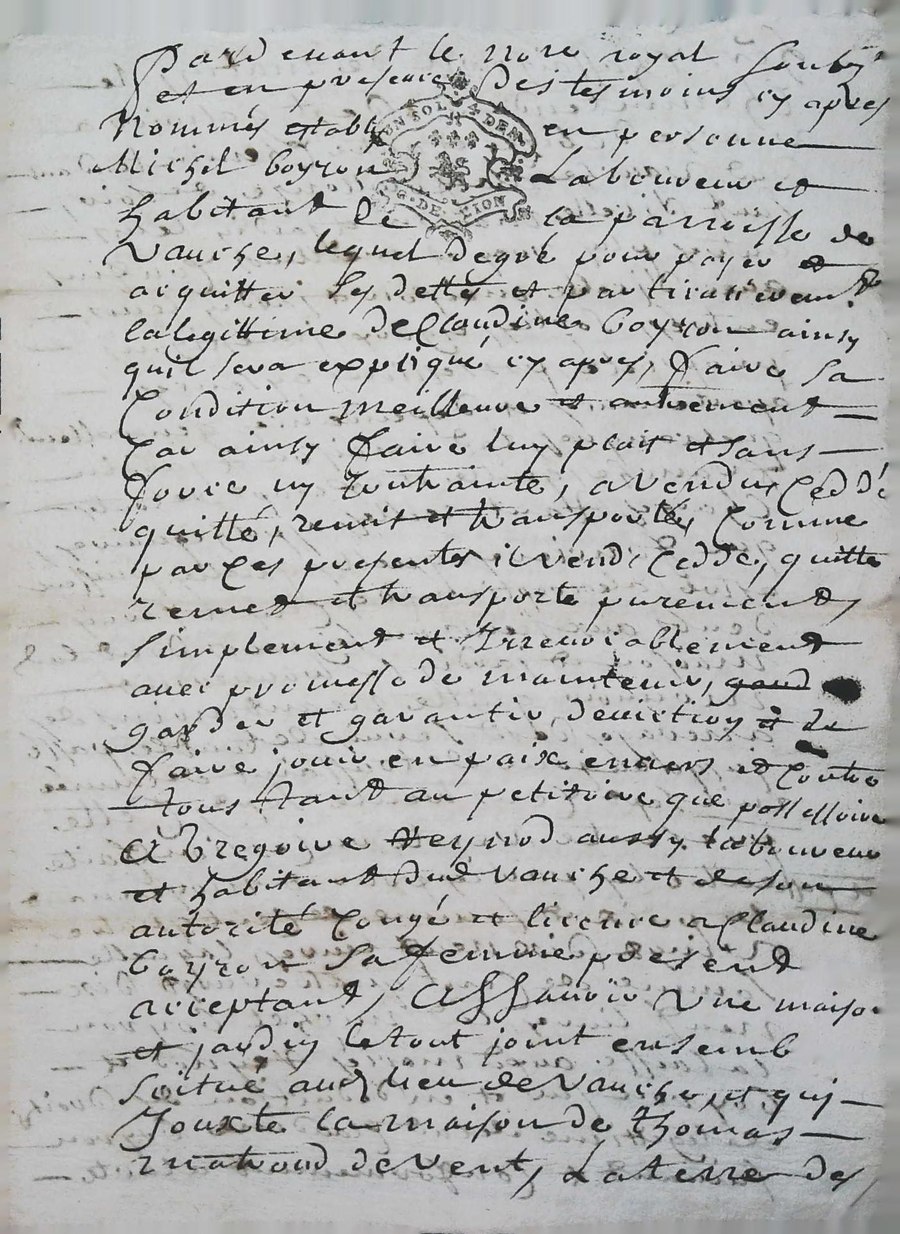 Pardevant le nore royal soub.né
et en presence des tesmoins cy apres
Nommés estably en personne
UN SOL 4 DEN
Michel boyron Laboureur et
G. DE LION
habitant de la parroisse de
Vausche, lequel degré pour payer et
acquitter ses dettes et particulierem.t
la legittime de Claudine boyron ainsy
quil sera expliqué cy apres, faire sa
Condition meilleure et autrement
Car ainsy faire luy plait et sans
force ny Contrainte, a vendu, Ceddé
quitté, remit et transporté, Comme
par Ces presentes il vend, Cedde, quitte
remet et transporte purement,
simplement et Irrevocablement
avec promesse de maintenir, gard
garder et garantir, deviction et de
faire jouir en paix envers et Contre
tous tant au petitoire que possessoire
A Gregoire Reynod aussy laboureur
et habitant dud Vausche et de son
autorité Congé et licence a Claudine
boyron sa femme present
acceptant, Assavoir une maison
et jardin le tout joint ensemb
scitué aud lieu de Vausche, et qui
Jouxte la maison de thomas
de vent, La terre des